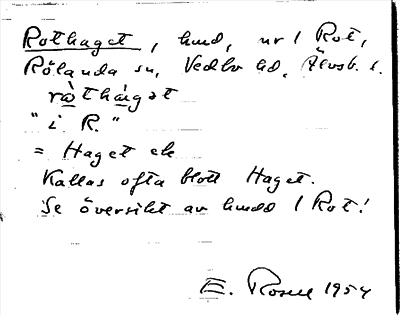 Rothaget, hmd, nr 1 Rot,
Rölanda sn, Vedbo hd, Älvsb. l.
ràthàgət
"i R."
= Haget ek
Kallas ofta blott Haget.
Se översikt av hmdd 1 Rot!
E. Rosell 1954